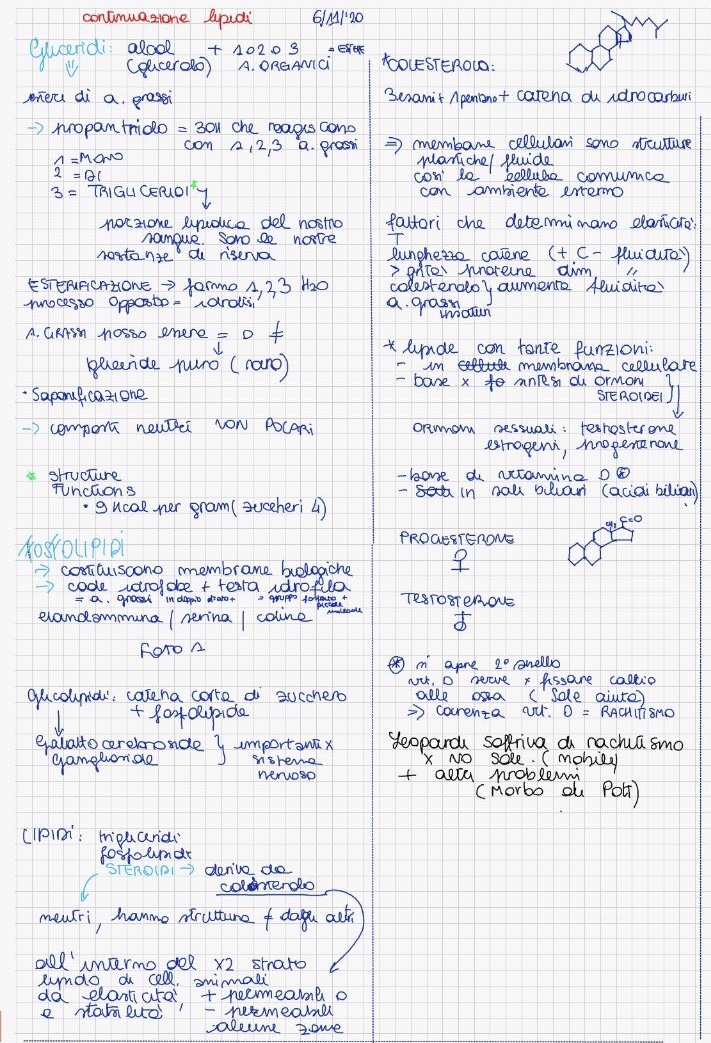 continuazione lipidi 6/11/'20
Gliceridi: alcol + 1 o 2 o 3 = ESTERE
(glicerolo) A. ORGANICI
esteri di a. grassi
→ propantriolo = 3OH che reagiscono
con 1, 2, 3 a. grassi
1 = MONO
2 = DI
3 = TRIGLICERIDI*
porzione lipidica del nostro
sangue. Sono le nostre
sostanze di riserva
ESTERIFICAZIONE → formo 1,2,3 H2O
processo opposto = idrolisi
A. GRASSI possono essere = O ≠
gliceride puro (raro)
• Saponificazione
→ composti neutri NON POLARI
* structure
Functions
• 9 kcal per gram (zuccheri 4)
FOSFOLIPIDI
→ costituiscono membrane biologiche
→ code idrofobe + testa idrofila
= a. grassi in doppio strato = gruppo fosfato +
piccole molecole
etanolammina / serina / colina
FOTO 1
Glicolipidi: catena corta di zucchero
+ fosfolipide
Galatto cerebroside } importanti x
Ganglioside sistema
nervoso
LIPIDI: trigliceridi
fosfolipidi
STEROIDI → deriva da
colesterolo
neutri, hanno struttura ≠ dagli altri
all'interno del x2 strato
lipido di cell. animali
da elasticità, + permeabili o
e stabilità - permeabili
alcune zone
*COLESTEROLO:
3 esani + 1 pentano + catena di idrocarburi
⇒ membrane cellulari sono strutture
plastiche / fluide
così la cellula comunica
con ambiente esterno
fattori che determinano elasticità:
T
lunghezza catene (+ C - fluidità)
> q.ntà proteine dim. "
colesterolo } aumenta fluidità
a. grassi
insaturi
* lipide con tante funzioni:
- in membrana cellulare
- base x sintesi di ormoni
STEROIDEI
ORMONI sessuali: testosterone
estrogeni, progesterone
- base di vitamina D ⊛
- in sali biliari (acidi biliari)
CH3 C=O
PROGESTERONE
♀
TESTOSTERONE
⊛ si apre 2° anello
vit. D serve x fissare calcio
alle ossa (Sole aiuta)
⇒ carenza vit. D = RACHITISMO
Leopardi soffriva di rachitismo
x NO Sole. (nobile)
+ altri problemi
(Morbo di Pott)